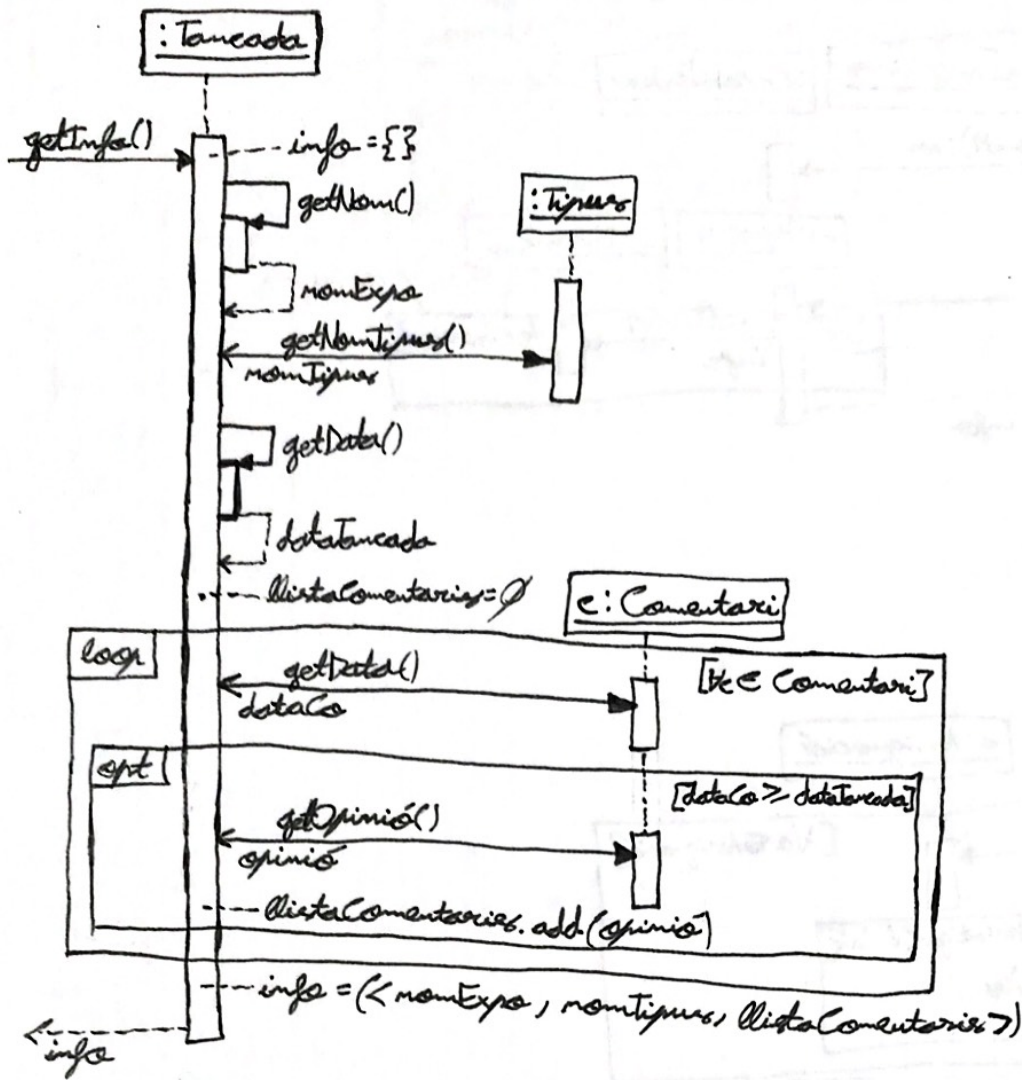 : Tancada
getInfo()
info = {}
getNom()
: Tipus
nomExpo
getNomTipus()
nomTipus
getData()
dataTancada
llistaComentaris = Ø
c : Comentari
loop
getData()
[∀c ∈ Comentari]
dataCo
opt
[dataCo >= dataTancada]
getOpinió()
opinió
llistaComentaris.add(opinió)
info = (< nomExpo, nomTipus, llistaComentaris >)
info